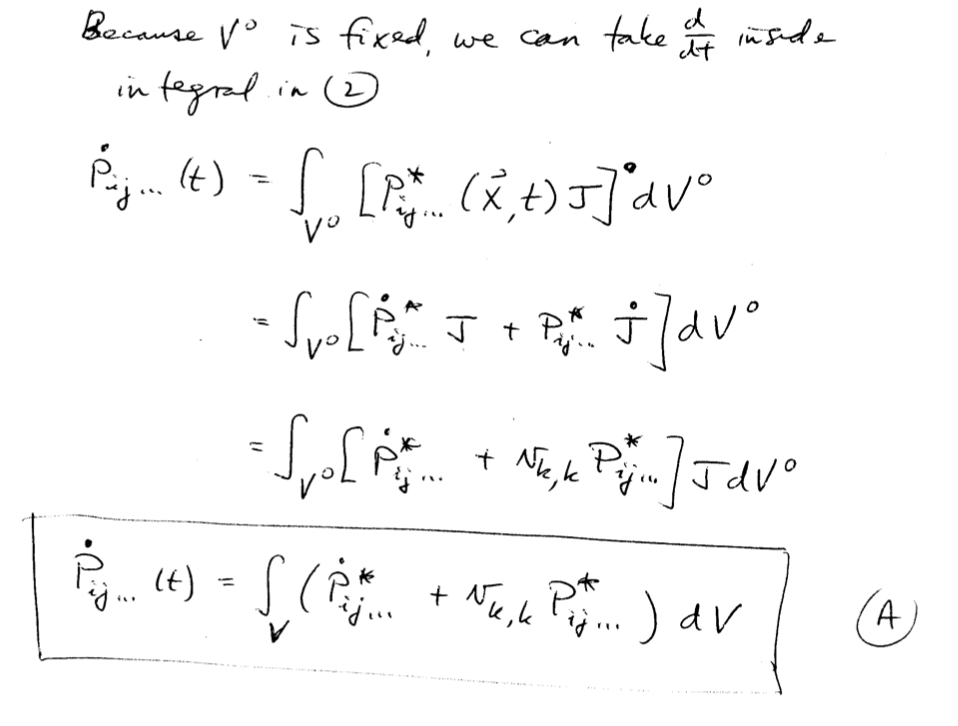 Because V° is fixed, we can take d/dt inside
integral in ②
Ṗij... (t) = ∫V° [P*ij... (x⃗,t) J]˙ dV°
= ∫V° [Ṗ*ij... J + P*ij... J̇] dV°
= ∫V° [Ṗ*ij... + vk,k P*ij...] J dV°
Ṗij... (t) = ∫V (Ṗ*ij... + vk,k P*ij...) dV Ⓐ